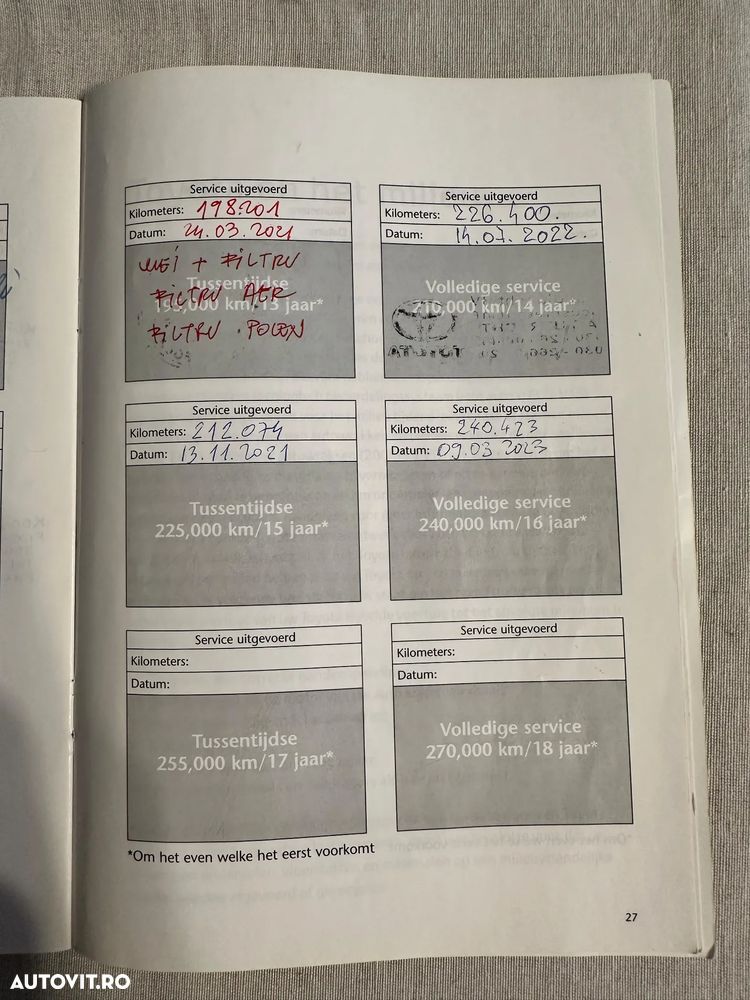 Service uitgevoerd
Kilometers: 198.201
Datum: 24.03.2021
ULEI + FILTRU
FILTRU AER
FILTRU POLEN
Tussentijdse
195,000 km/13 jaar*
Service uitgevoerd
Kilometers: 226.400.
Datum: 14.07.2022.
Volledige service
210,000 km/14 jaar*
TOYOTA
Service uitgevoerd
Kilometers: 212.074
Datum: 13.11.2021
Tussentijdse
225,000 km/15 jaar*
Service uitgevoerd
Kilometers: 240.423
Datum: 09.03.2023
Volledige service
240,000 km/16 jaar*
Service uitgevoerd
Kilometers:
Datum:
Tussentijdse
255,000 km/17 jaar*
Service uitgevoerd
Kilometers:
Datum:
Volledige service
270,000 km/18 jaar*
*Om het even welke het eerst voorkomt
27
AUTOVIT.RO